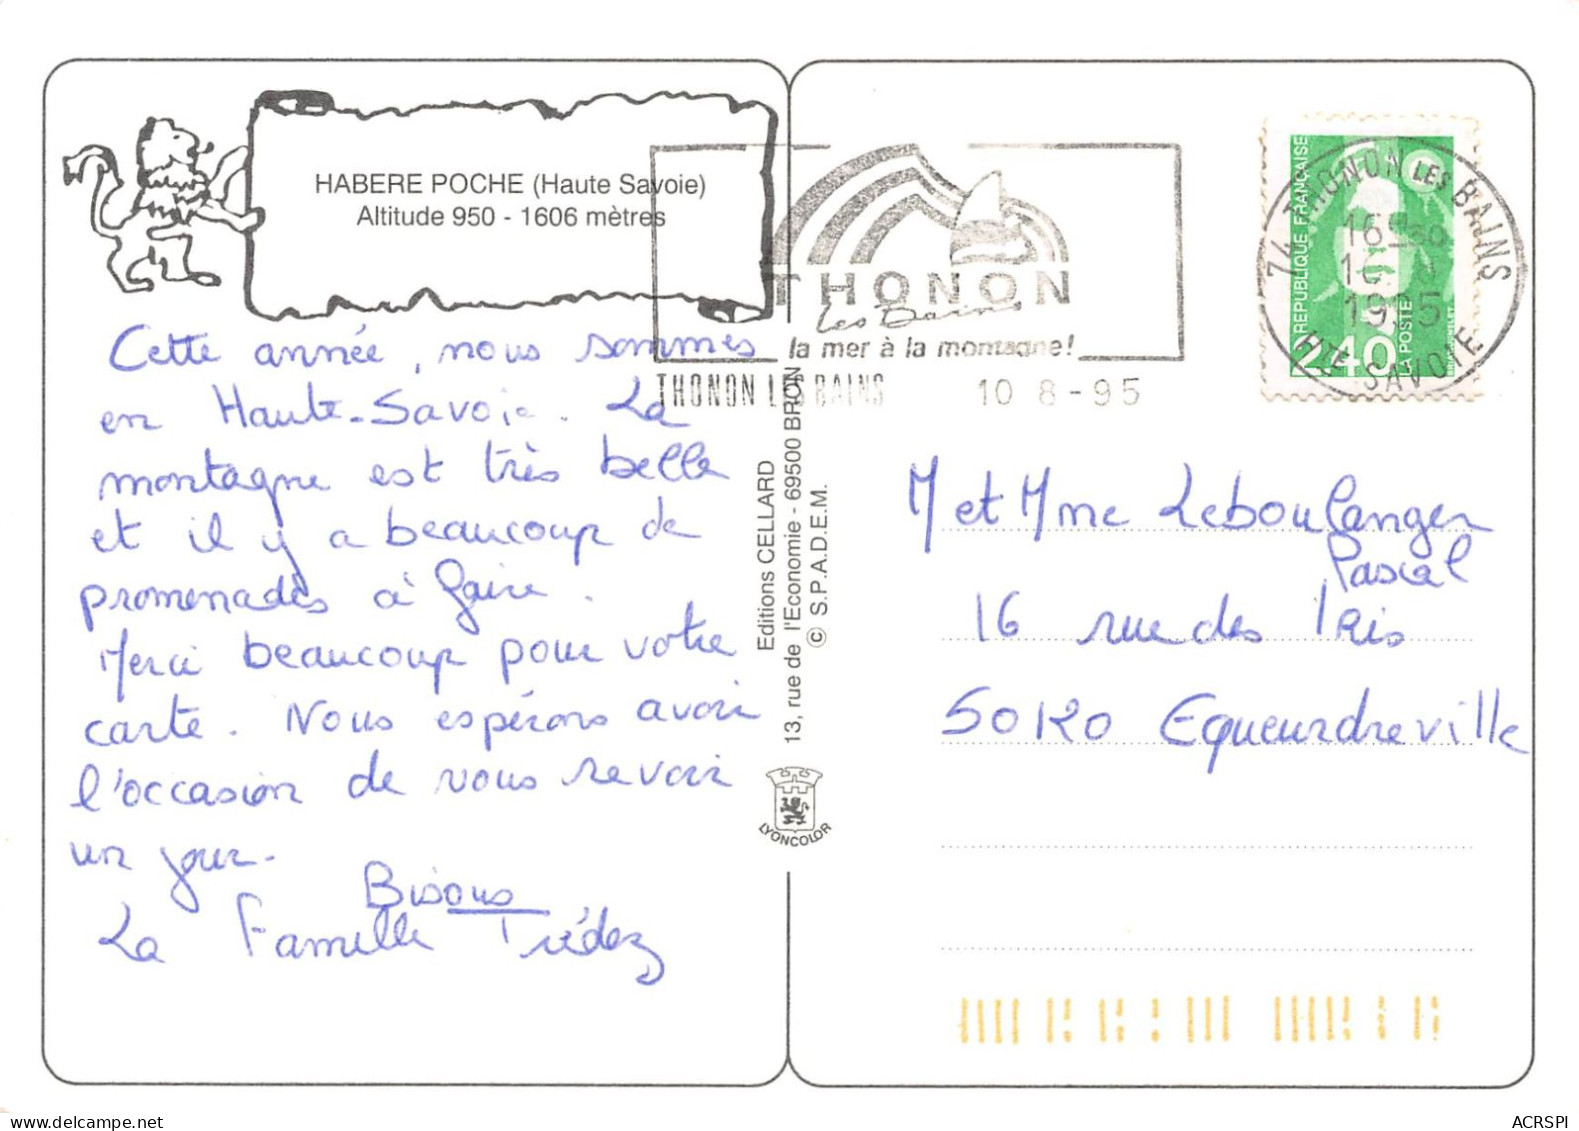 HABERE POCHE (Haute Savoie)
Altitude 950 - 1606 mètres
Cette année, nous sommes
en Haute-Savoie. La
montagne est très belle
et il y a beaucoup de
promenades à faire.
Merci beaucoup pour votre
carte. Nous espérons avoir
l'occasion de vous revoir
un jour.
Bisous
La Famille Trédez
Editions CELLARD
13, rue de l'Economie - 69500 BRON
© S.P.A.D.E.M.
LYONCOLOR
THONON
les Bains
la mer à la montagne!
THONON LES BAINS 10 8 - 95
74 THONON LES BAINS
16H
1995
HTE SAVOIE
REPUBLIQUE FRANÇAISE
2,40
LA POSTE
M et Mme Leboulanger
Pascal
16 rue des Iris
50120 Equeurdreville
ACRSPI